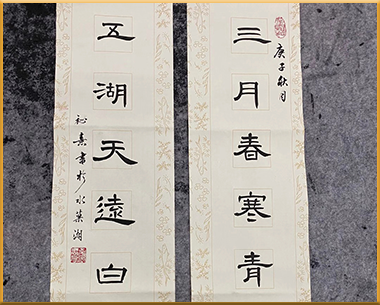 庚子秋月
三月春寒青
五湖天遠白
書於水築湖